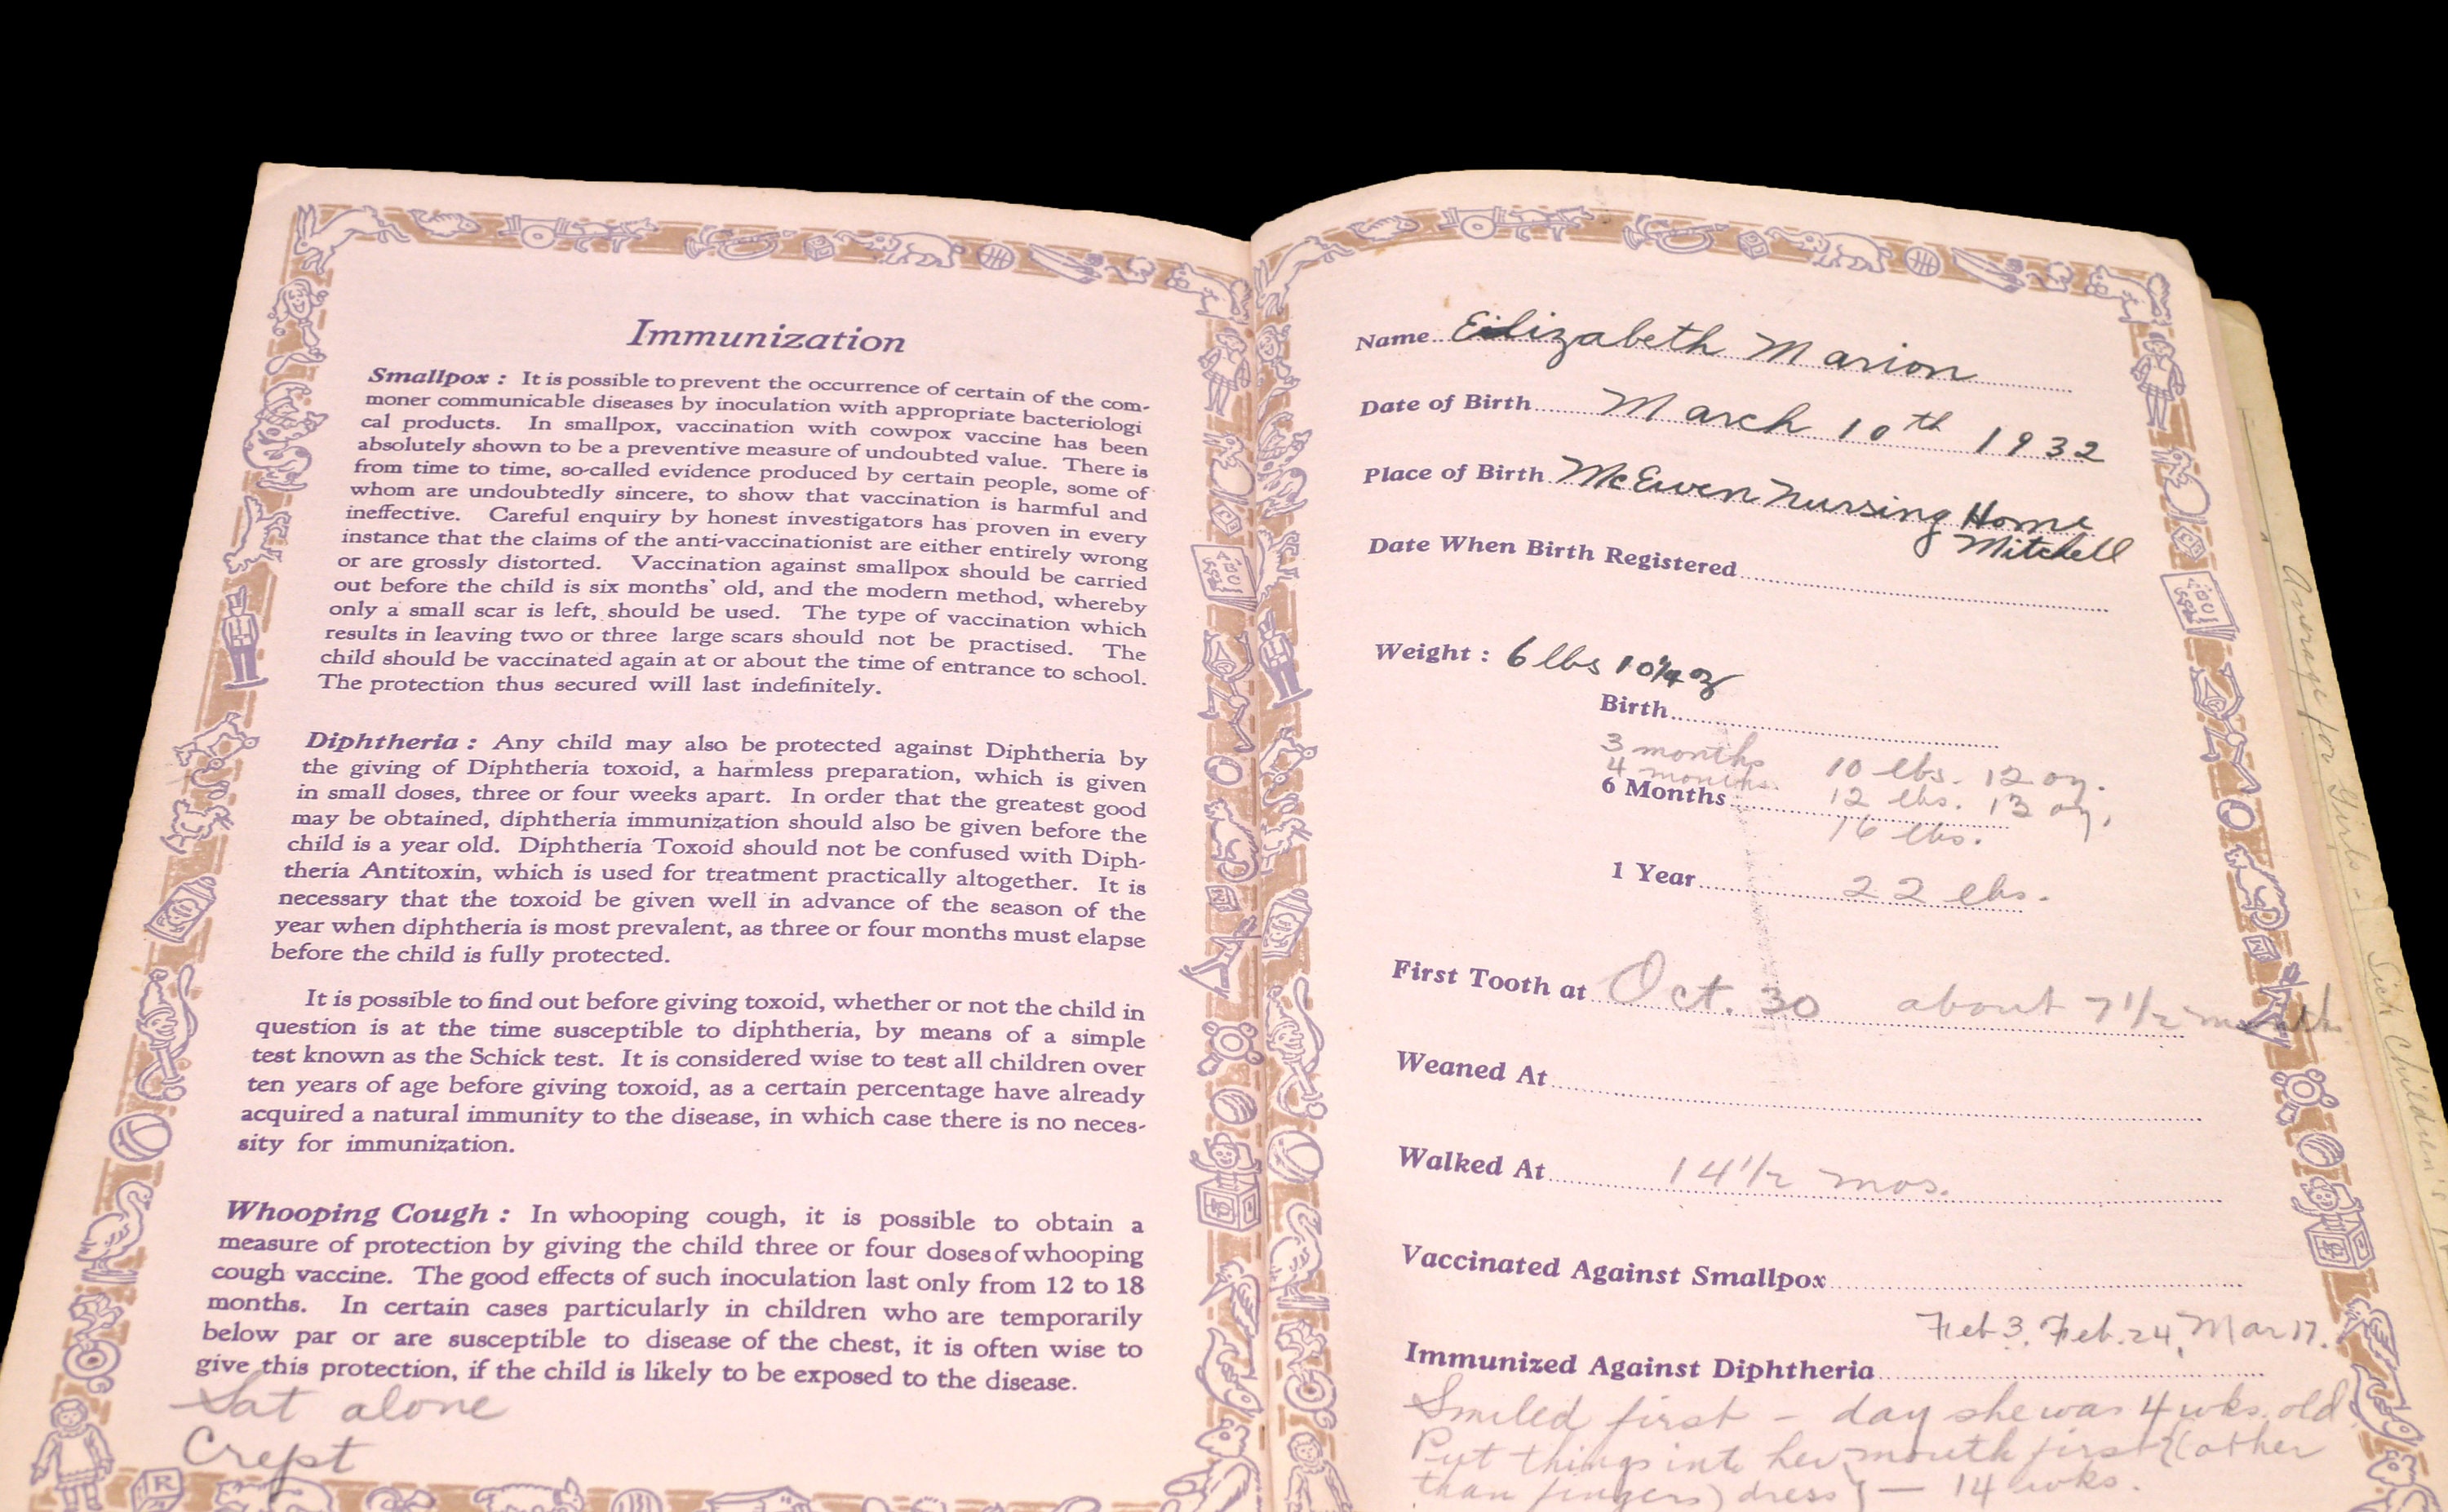 Immunization
Smallpox : It is possible to prevent the occurrence of certain of the com-
moner communicable diseases by inoculation with appropriate bacteriologi
cal products. In smallpox, vaccination with cowpox vaccine has been
absolutely shown to be a preventive measure of undoubted value. There is
from time to time, so-called evidence produced by certain people, some of
whom are undoubtedly sincere, to show that vaccination is harmful and
ineffective. Careful enquiry by honest investigators has proven in every
instance that the claims of the anti-vaccinationist are either entirely wrong
or are grossly distorted. Vaccination against smallpox should be carried
out before the child is six months' old, and the modern method, whereby
only a small scar is left, should be used. The type of vaccination which
results in leaving two or three large scars should not be practised. The
child should be vaccinated again at or about the time of entrance to school.
The protection thus secured will last indefinitely.
Diphtheria : Any child may also be protected against Diphtheria by
the giving of Diphtheria toxoid, a harmless preparation, which is given
in small doses, three or four weeks apart. In order that the greatest good
may be obtained, diphtheria immunization should also be given before the
child is a year old. Diphtheria Toxoid should not be confused with Diph-
theria Antitoxin, which is used for treatment practically altogether. It is
necessary that the toxoid be given well in advance of the season of the
year when diphtheria is most prevalent, as three or four months must elapse
before the child is fully protected.
It is possible to find out before giving toxoid, whether or not the child in
question is at the time susceptible to diphtheria, by means of a simple
test known as the Schick test. It is considered wise to test all children over
ten years of age before giving toxoid, as a certain percentage have already
acquired a natural immunity to the disease, in which case there is no neces-
sity for immunization.
Whooping Cough : In whooping cough, it is possible to obtain a
measure of protection by giving the child three or four doses of whooping
cough vaccine. The good effects of such inoculation last only from 12 to 18
months. In certain cases particularly in children who are temporarily
below par or are susceptible to disease of the chest, it is often wise to
give this protection, if the child is likely to be exposed to the disease.
Sat alone
Crept
Name Elizabeth Marion
Date of Birth March 10th 1932
Place of Birth McEwen Nursing Home
Mitchell
Date When Birth Registered
Weight : 6 lbs 10 1/4 oz
Birth
3 months 10 lbs. 12 oz.
4 months. 12 lbs. 13 oz.
6 Months 16 lbs.
1 Year 22 lbs.
First Tooth at Oct. 30 about 7 1/2 months
Weaned At
Walked At 14 1/2 mos.
Vaccinated Against Smallpox
Feb 3, Feb. 24, Mar 17.
Immunized Against Diphtheria
Smiled first - day she was 4 wks. old
Put things into her mouth first (other
than fingers) dress - 14 wks.
Average for Girls -
Sick Children's